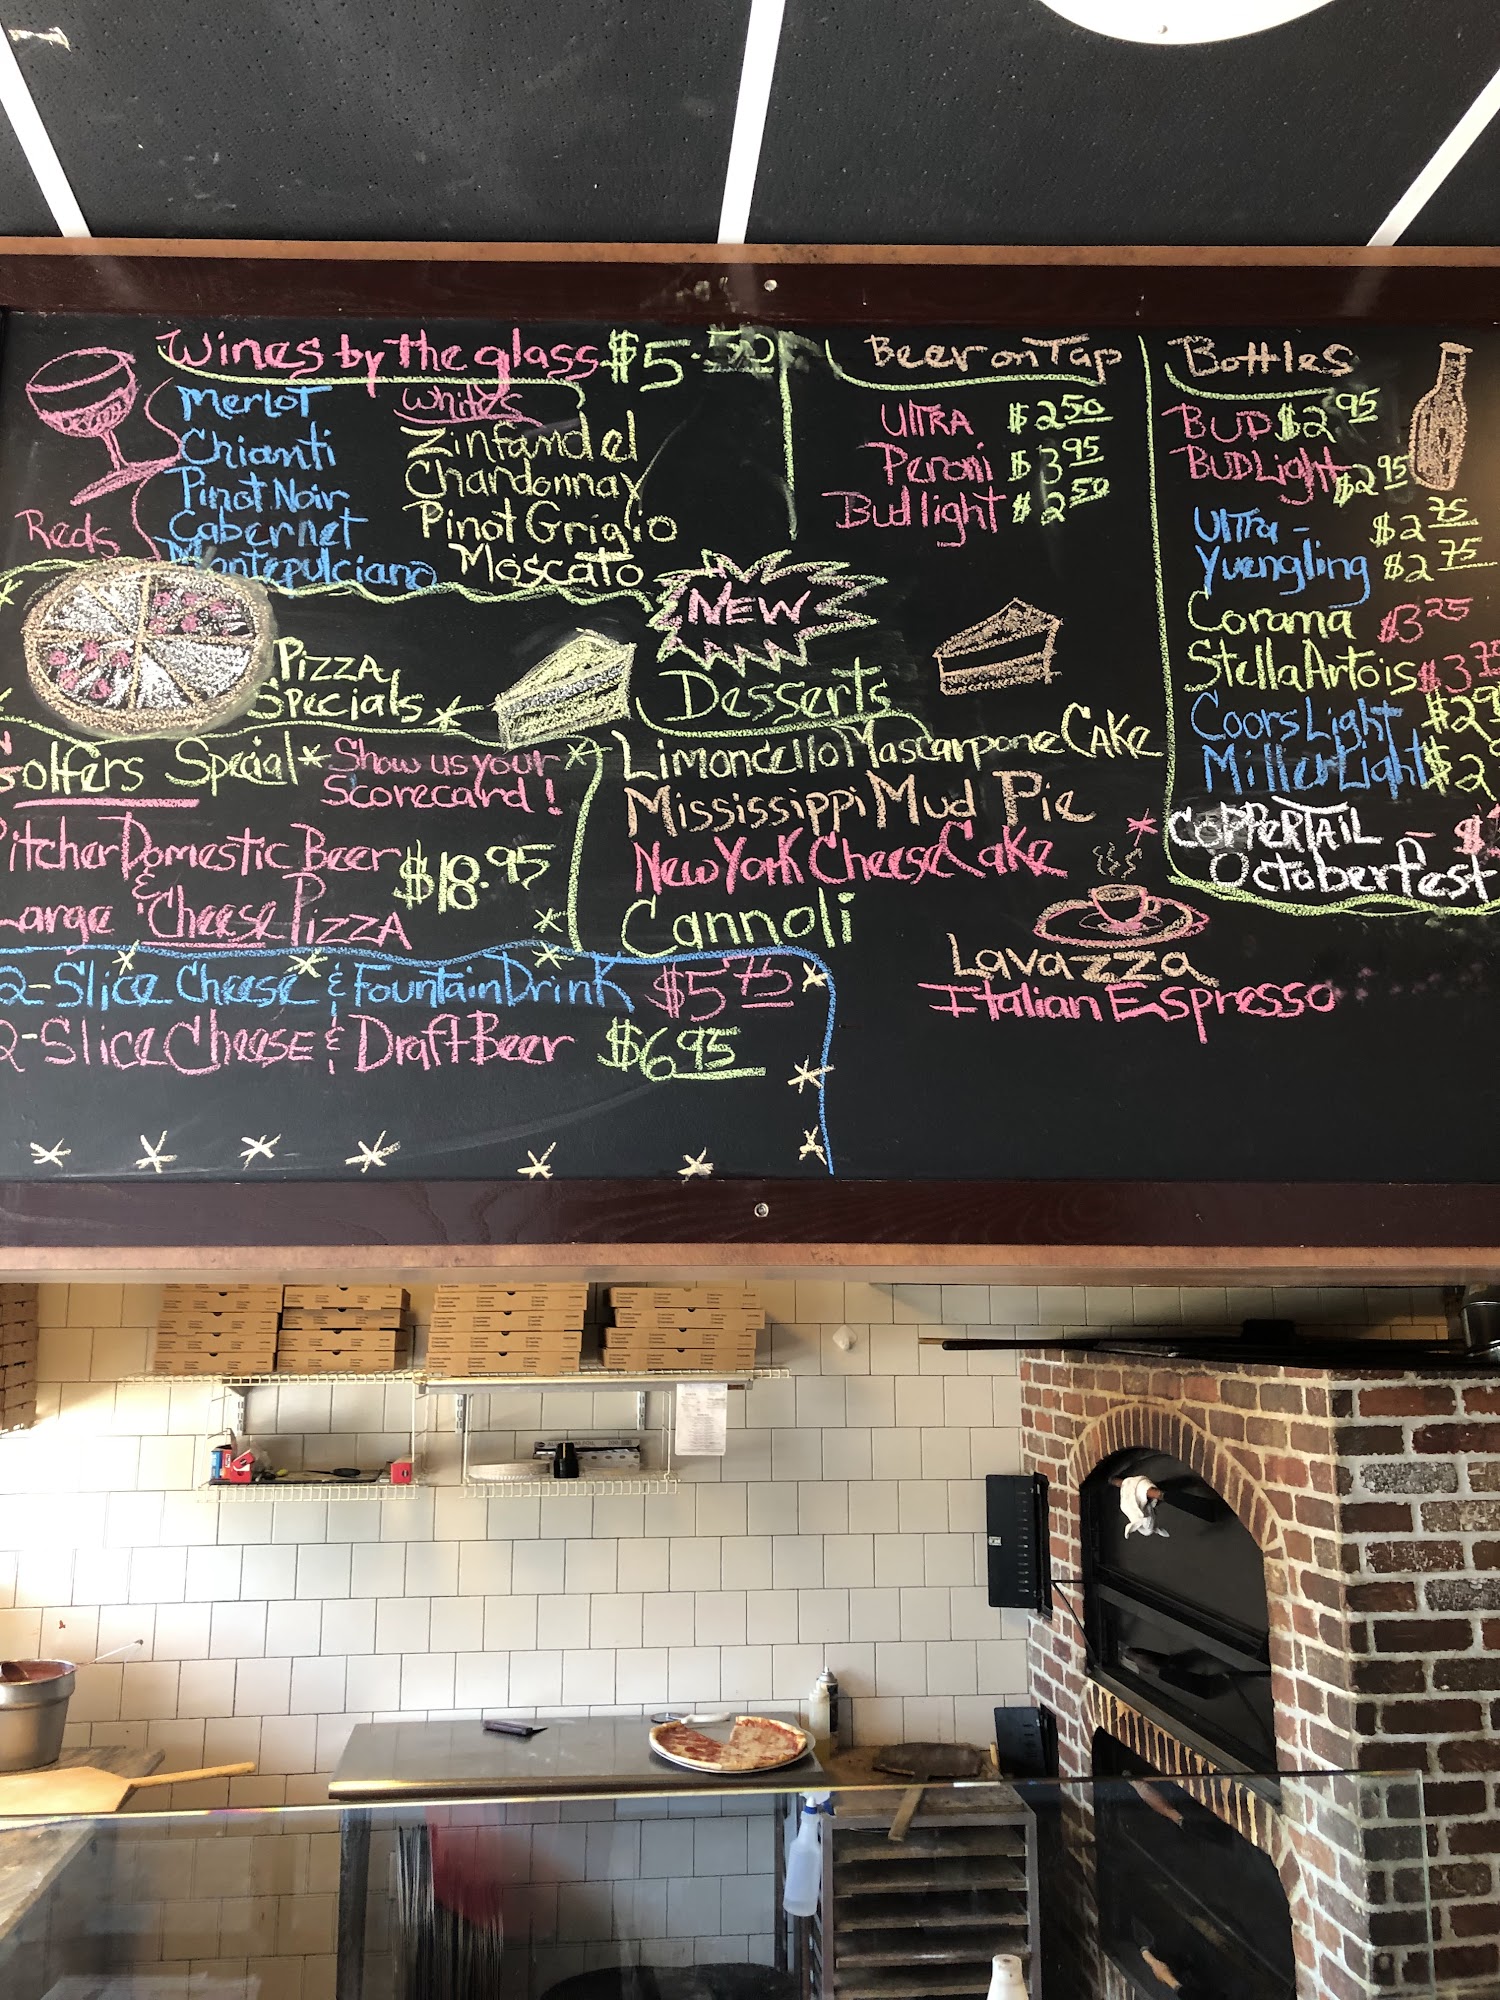 Wines by The glass $5.50
Reds
Merlot
Chianti
Pinot Noir
Cabernet
Montepulciano
Whites
Zinfandel
Chardonnay
Pinot Grigio
Moscato
Beer on Tap
Ultra $2.50
Peroni $3.95
Bud light $2.50
Bottles
BUD $2.95
BUD Light $2.95
Ultra - $2.75
Yuengling $2.75
Corama $3.25
Stella Artois $3.75
Coors Light $2.9
Miller Light $2.9
COPPERTAIL - $
Octoberfest
Pizza
Specials
Golfers Special * Show us your
Scorecard!
Pitcher Domestic Beer
&
Large Cheese Pizza
$18.95
2-Slice Cheese & Fountain Drink $5.75
2-Slice Cheese & Draft Beer $6.95
NEW
Desserts
Limoncello Mascarpone Cake
Mississippi Mud Pie
New York Cheese Cake
Cannoli
Lavazza
Italian Espresso